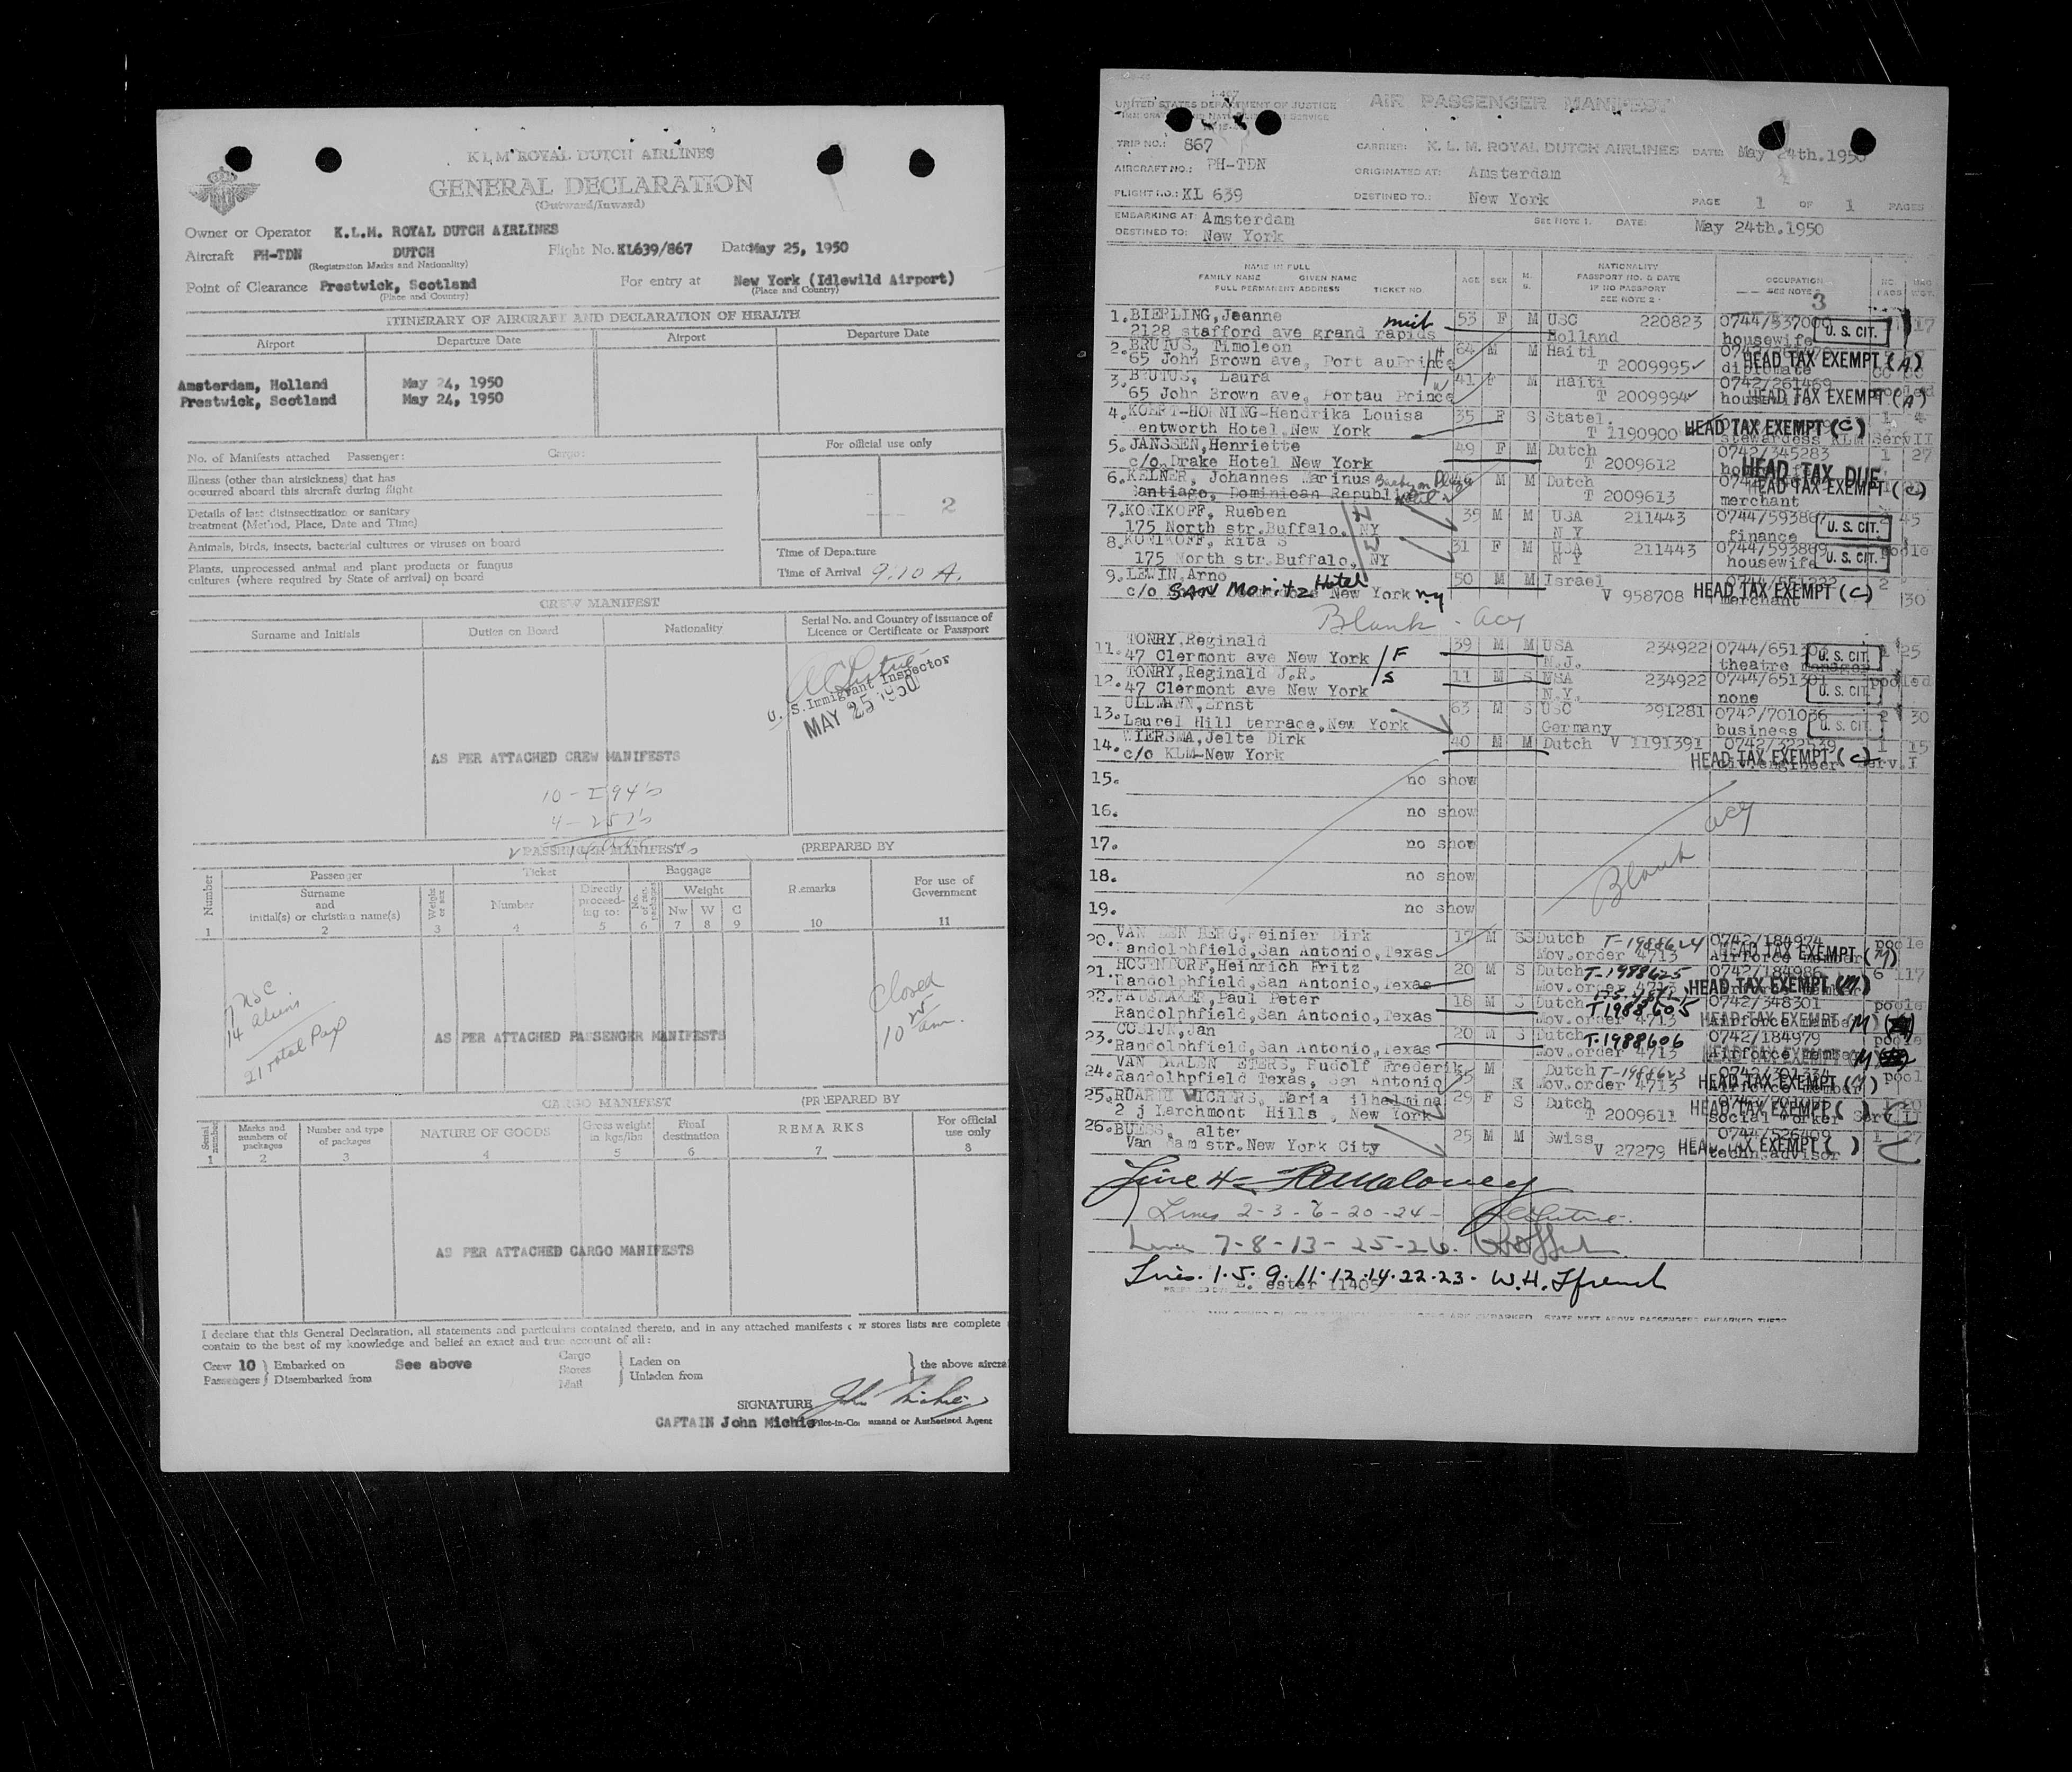 K L M ROYAL DUTCH AIRLINES
GENERAL DECLARATION
(Outward/Inward)
Owner or Operator K.L.M. ROYAL DUTCH AIRLINES
Aircraft PH-TDN DUTCH Flight No. KL639/867 Date May 25, 1950
(Registration Marks and Nationality)
Point of Clearance Prestwick, Scotland For entry at New York (Idlewild Airport)
(Place and Country) (Place and Country)
ITINERARY OF AIRCRAFT AND DECLARATION OF HEALTH
Airport Departure Date Airport Departure Date
Amsterdam, Holland May 24, 1950
Prestwick, Scotland May 24, 1950
For official use only
No. of Manifests attached Passenger: Cargo:
Illness (other than airsickness) that has
occurred aboard this aircraft during flight
Details of last disinsectization or sanitary
treatment (Method, Place, Date and Time)
2
Animals, birds, insects, bacterial cultures or viruses on board
Plants, unprocessed animal and plant products or fungus
cultures (where required by State of arrival) on board
Time of Departure
Time of Arrival 9:10 A.
CREW MANIFEST
Surname and Initials Duties on Board Nationality Serial No. and Country of issuance of
Licence or Certificate or Passport
U. S. Immigrant Inspector
MAY 25 1950
AS PER ATTACHED CREW MANIFESTS
10 - I 94's
4 - 257's
PASSENGER MANIFEST (PREPARED BY
Number Passenger Ticket Baggage Remarks For use of
Government
Surname
and
initial(s) or christian name(s) Weight
or sex Number Directly
proceed-
ing to: No.
of
packages Weight
Nw W C
1 2 3 4 5 6 7 8 9 10 11
7 USC
14 aliens
21 Total Pax
Closed
10 25 am.
AS PER ATTACHED PASSENGER MANIFESTS
CARGO MANIFEST (PREPARED BY
Serial
number Marks and
numbers of
packages Number and type
of packages NATURE OF GOODS Gross weight
in kgs/lbs Final
destination REMARKS For official
use only
1 2 3 4 5 6 7 8
AS PER ATTACHED CARGO MANIFESTS
I declare that this General Declaration, all statements and particulars contained therein, and in any attached manifests or stores lists are complete
contain to the best of my knowledge and belief an exact and true account of all:
Crew 10 } Embarked on See above Cargo } Laden on } the above aircra
Passengers } Disembarked from Stores Unladen from
Mail
SIGNATURE John Michie
CAPTAIN John Michie Pilot-in-Command or Authorized Agent
I-467
UNITED STATES DEPARTMENT OF JUSTICE AIR PASSENGER MANIFEST
TRIP NO.: 867 CARRIER: K. L. M. ROYAL DUTCH AIRLINES DATE: May 24th.1950
AIRCRAFT NO.: PH-TDN ORIGINATED AT: Amsterdam
FLIGHT NO.: KL 639 DESTINED TO: New York PAGE 1 OF 1 PAGES
EMBARKING AT: Amsterdam SEE NOTE 1. DATE: May 24th.1950
DESTINED TO: New York
NAME IN FULL
FAMILY NAME GIVEN NAME
FULL PERMANENT ADDRESS TICKET NO. AGE SEX M.
S. NATIONALITY
PASSPORT NO. & DATE
IF NO PASSPORT
SEE NOTE 2 OCCUPATION
SEE NOTE 2
3
1. BIERLING, Jeanne 53 F M USC 220823 0744/537000 U. S. CIT. 17
2128 stafford ave grand rapids mich Holland housewife
2. BRUTUS, Timoleon 64 M M Haiti HEAD TAX EXEMPT (A)
65 John Brown ave, Port auPrince T 2009995 diplomate
3. BRUTUS, Laura 41 F M Haiti 0742/261469 pooled
65 John Brown ave, Portau Prince T 2009994 HEAD TAX EXEMPT (A)
4. KOERT-HORNING-Hendrika Louisa 35 F S Statel. 1 4
entworth Hotel New York T 1190900 HEAD TAX EXEMPT (C) stewardess KLM Serv II
5. JANSSEN, Henriette 49 F M Dutch 0742/345283 1 27
c/o Drake Hotel New York T 2009612 HEAD TAX DUE
6. KELNER, Johannes Marinus M M Dutch HEAD TAX EXEMPT (C)
Santiago, Dominican Republic T 2009613 merchant
7. KONIKOFF, Rueben 35 M M USA 211443 0744/593867 U. S. CIT. 2 45
175 North str.Buffalo, NY N Y finance
8. KONIKOFF, Rita S 31 F M USA 211443 0744/593869 U. S. CIT. poole
175 North str.Buffalo, NY N Y housewife
9. LEWIN, Arno 50 M M Israel 2
c/o SAN Moritz Hotel New York ny V 958708 HEAD TAX EXEMPT (C) merchant 30
Blank - acy
11. TONRY, Reginald 39 M M USA 234922 U. S. CIT. 25
47 Clermont ave New York / F N.J. theatre manager
12. TONRY, Reginald J.R. / S 11 M S USA 234922 0744/651301 pooled
47 Clermont ave New York N.Y. none U. S. CIT.
13. ULLMANN, Ernst 63 M S USC 291281 0742/701036 2 30
Laurel Hill terrace, New York Germany business U. S. CIT.
14. WIERSMA, Jelte Dirk 40 M M Dutch V 1191391 0742/322539 1 15
c/o KLM-New York HEAD TAX EXEMPT (C) Serv.I
15. no show
16. no show acy
17. no show
18. no show Blank
19. no show
20. VAN DEN BERG, Reinier Dirk 17 M S Dutch T-1988624 0742/184974 poole
Randolphfield, San Antonio, Texas Mov.order 4713 HEAD TAX EXEMPT (M)
21. HOGENDORF, Heinrich Fritz 20 M S Dutch T-1988625 0742/184986 6 117
Randolphfield, San Antonio, Texas Mov.order 4713 HEAD TAX EXEMPT (M)
22. Paul Peter 18 M S Dutch T1988605 0742/348301 poole
Randolphfield, San Antonio, Texas Mov.order 4713 HEAD TAX EXEMPT M
23. COSIJN, Jan 20 M S Dutch T-1988606 0742/184979 poole
Randolphfield, San Antonio, Texas Mov.order 4713 Airforce member M
24. VAN Rudolf Frederik 35 M Dutch T-1988623 pool
Randolhpfield Texas, San Antonio Mov.order 4713 HEAD TAX EXEMPT (M)
25. Maria ilhelmina 29 F S Dutch
2 j Larchmont Hills, New York T 2009611 HEAD TAX EXEMPT ( ) Serv II
26. BUESS, alter 25 M M Swiss 0744/526809 1 27
Van Dam str.New York City V 27279 HEAD TAX EXEMPT ( ) techn.advisor
Line 4 -
Lines 2-3-6-20-24-
Lines 7-8-13-25-26.
Lines. 1.5.9.11.12.14.22.23- W.H. Ffrench
ester 11405